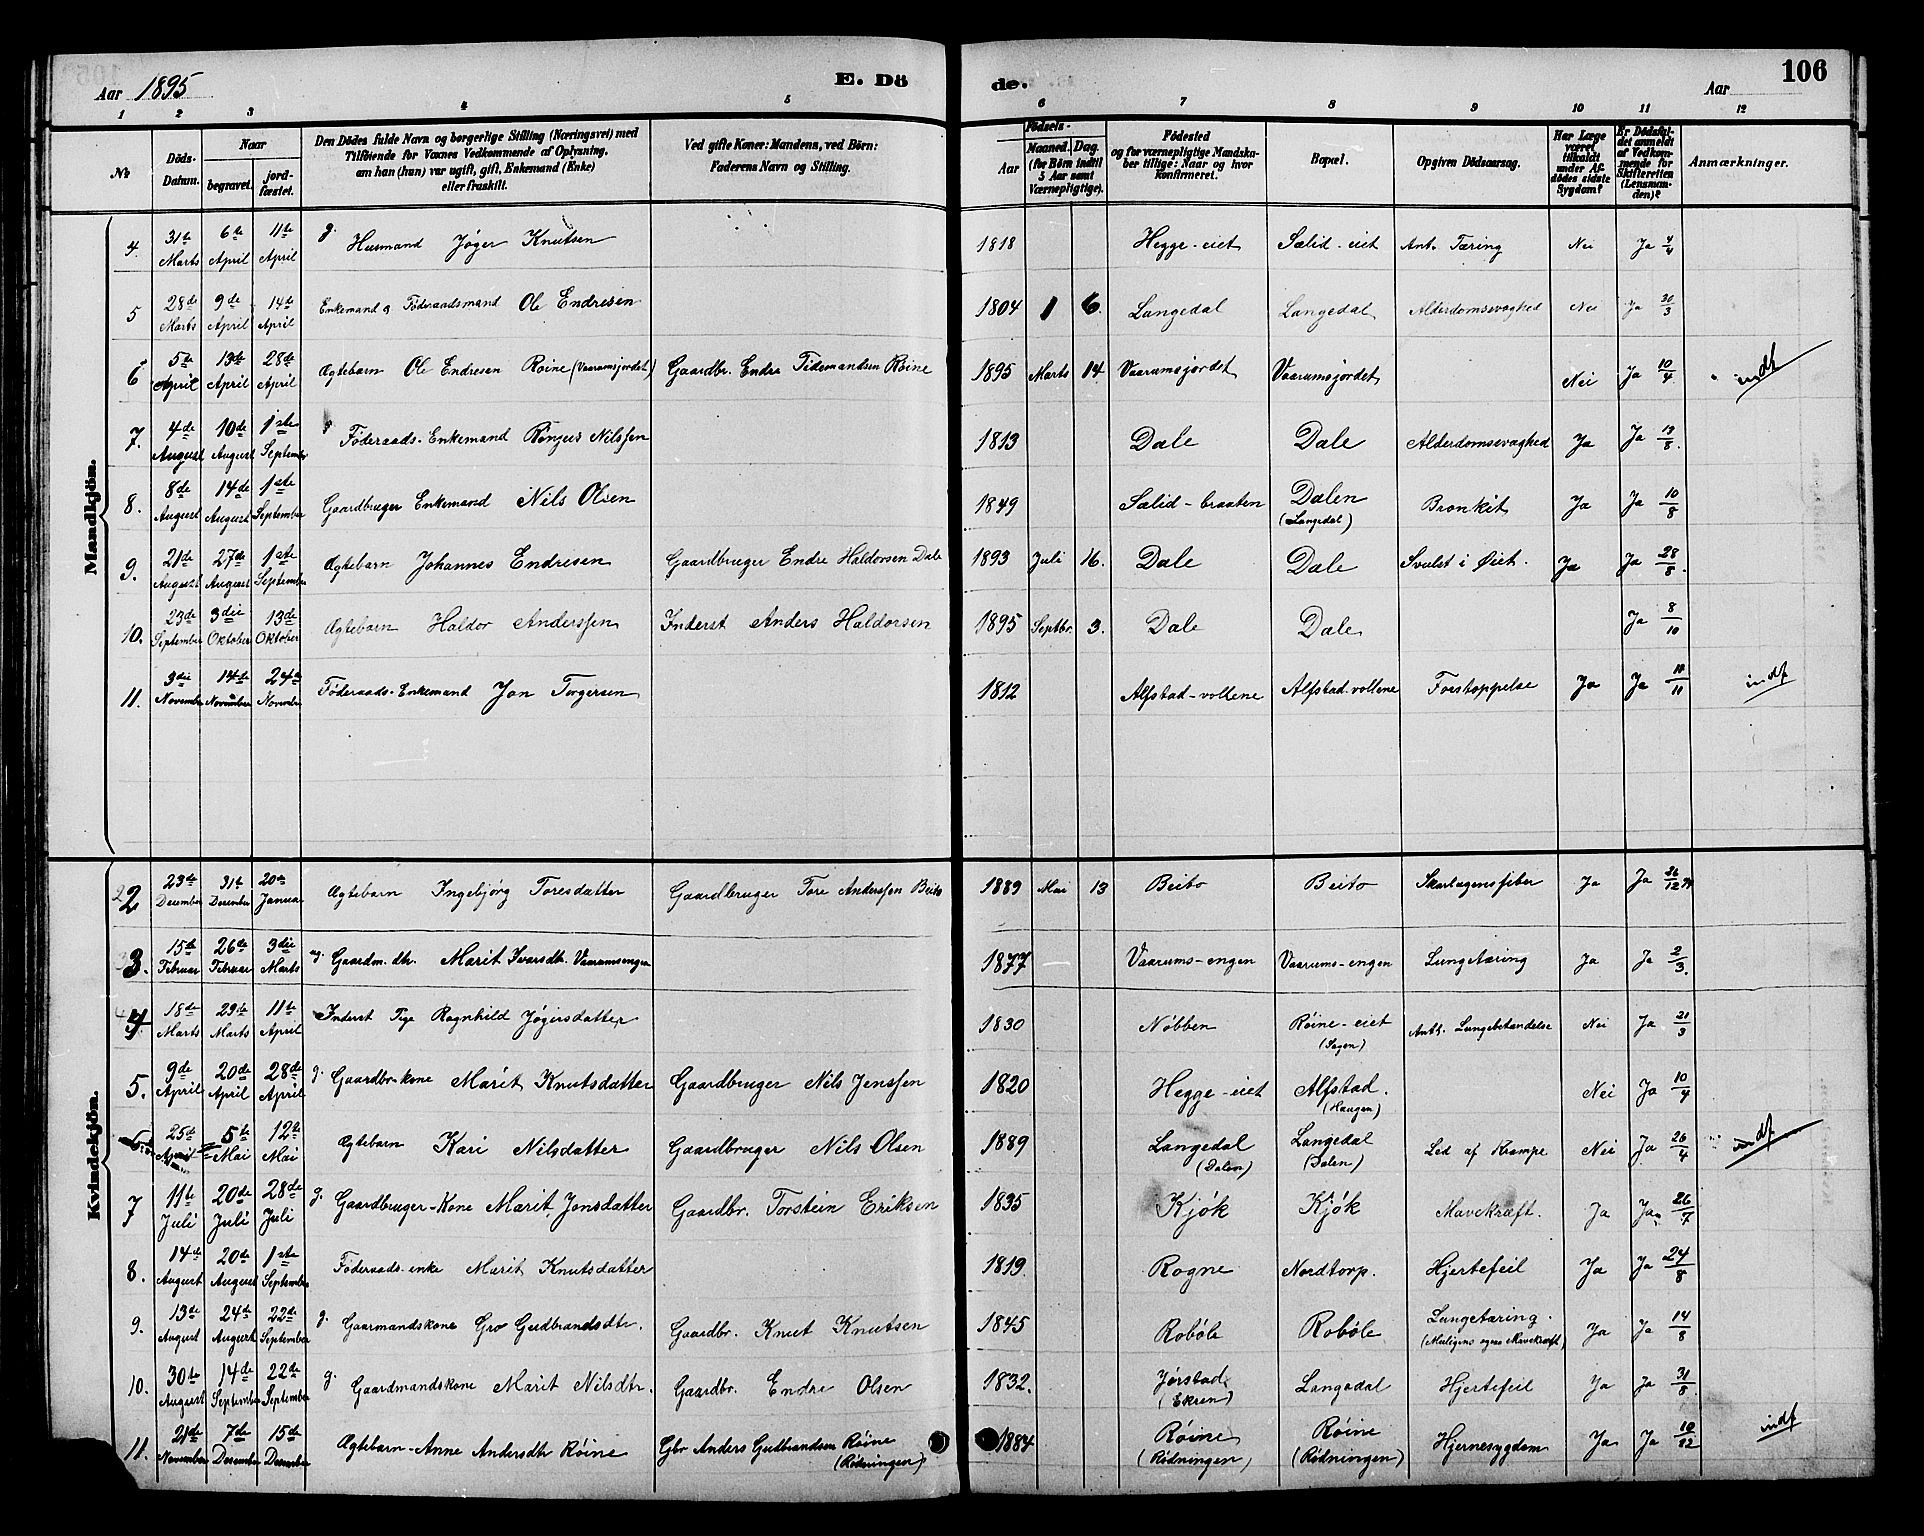 Aar 1895
E. Dö
de.
Aar
106
1 2 3 4 5 6 7 8 9 10 11 12
№
Döds-Datum.
Naar
begravet.
jord-fæstet.
Den Dödes fulde Navn og borgerlige Stilling (Næringsvei) med
Tilföiende for Voxnes Vedkommende af Oplysning,
om han (hun) var ugift, gift, Enkemand (Enke)
eller fraskilt.
Ved gifte Koner: Mandens, ved Börn:
Faderens Navn og Stilling.
Födsels-
Aar
Maaned. Dag.
(for Börn indtil
5 Aar samt
Værnepligtige).
Födested
og for værnepligtige Mandska-
ber tillige: Naar og hvor
konfirmeret.
Bopæl.
Opgiven Dödsaarsag.
Har Læge
været
tilkaldt
under Af-
dödes sidste
Sygdom?
Er Dödsfal-
det anmeldt
af Vedkom-
mende for
Skifteretten
(Lensman-
den)?
Anmærkninger.
Mandkjön.
4. 31te Marts 6te April 11te April g. Husmand Jøger Knutsen 1818 Hegge-eiet Sælid-eiet Ant. Tæring Nei Ja 4/4
5 28de Marts 9de April 14de April Enkemand og Føderaadsmand Ole Endresen 1804 1 6. Langedal Langedal Alderdomssvaghed Nei Ja 30/3
6 5te April 13de April 28de April Ægtebarn Ole Endresen Røine (Vaarumsjordet) Gaardbr. Endre Tidemandsen Røine 1895 Marts 14 Vaarumsjordet Vaarumsjordet Nei Ja 10/4 indf
7. 4de August 10de August 1ste September Føderaads-Enkemand Nilssen 1813 Dale Dale Alderdomssvaghed Ja Ja 13/8.
8. 8de August 14de August 1ste September Gaardbruger Enkemand Nils Olsen 1849 Sælid-braaten Dalen (Langedal) Bronkit Ja Ja 10/8
9. 21de August 27de August 1ste September Ægtebarn Johannes Endresen Gaardbruger Endre Haldorsen Dale 1893 Juli 16. Dale Dale Svulst i Øiet. Ja Ja 28/8.
10. 23de September 3die Oktober 13de Oktober Ægtebarn Haldor Anderssen Inderst Anders Haldorsen 1895 Septbr. 3. Dale Dale Ja 8/10
11. 3die November 14de November 24de November Føderaads-Enkemand Jon Torgersen 1812 Alfstad-vollene Alfstad-vollene Forstoppelse Ja Ja 11/11 indf
Kvindekjön.
2 23de December 31te December 20de Januar Ægtebarn Ingebjørg Toresdatter Gaardbruger Tore Anderssen Beito 1889 Mai 13 Beito Beito Skarlagensfeber Ja Ja 26/12 94
3. 15de Februar 26de Februar 3die Marts ug. Gaardm. dtr. Marit Ivarsdtr. Vaarumsengen 1877 Vaarums-engen Vaarums-engen Lungetæring Ja Ja 2/3.
4 18de Marts 29de Marts 11te April Inderst Pige Ragnhild Jøgersdatter 1830 Nøbben Røine-eiet Anth. Lungebetændelse Nei Ja 21/3
5. 9de April 20de April 28de April g. Gaardbr-kone Marit Knutsdatter Gaardbruger Nils Jenssen 1820 Hegge-eiet Alfstad. (Haugen) Nei Ja 10/4
6. 25de April 5te Mai 12te Mai Ægtebarn Kari Nilsdatter Gaardbruger Nils Olsen 1889 Langedal (Dalen) Langedal (Dalen) Led af Krampe Nei Ja 26/4 indf
7 11te Juli 20de Juli 28de Juli g. Gaardbruger-Kone Marit Jonsdatter Gaardbr. Torstein Eriksen 1835 Kjøk Kjøk Mavekræft. Ja Ja 26/7
8. 14de August 20de August 1ste September Føderaads-enke Marit Knutsdatter 1819 Rogne Nordtorp. Hjertefeil Ja Ja 24/8
9. 13de August 24de August 22de September g. Gaarmandskone Gro Gudbrandsdtr. Gaardbr. Knut Knutsen 1845 Robøle Robøle Lungetæring. (Muligens ogsaa Mavekræft) Ja Ja 14/8
10. 30te August 14de September 22de September g. Gaardmandskone Marit Nilsdtr. Gaardbr. Endre Olsen 1832. Jørstad (Ekren) Langedal Hjertefeil Ja Ja 31/8
11. 21de November 7de December 15de December Ægtebarn-Anne Andersdtr Røine Gbr Anders Gudbrandsen Røine (Rødningen) 1884 Røine (Rødningen) Røine (Rødningen) Hjernesygdom Ja Ja 10/12 indf